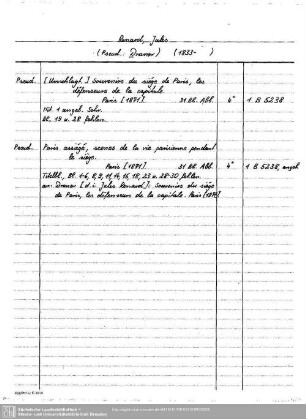 Renard, Jules
(Pseud. Draner) (1833- )
Pseud. [Umschlagt.] Souvenirs du siège de Paris, les
défenseurs de la capitale.
Paris [1871]. 31 Bl. Abb. 4° 1 B 5238
Mit 1 angeb. Schr.
Bl. 19 u. 28 fehlen.
Pseud. Paris assiégé, scenes de la vie parisienne pendant
le siège.
Paris [1871]. 31 Bl. Abb. 4° 1 B 5238, angeb.
Titelbl., Bl. 1-6, 8, 9, 11, 14, 16, 18, 23 u. 28-30 fehlen.
an: Draner [d.i. Jules Renard]: Souvenirs du siège
de Paris, les défenseurs de la capitale. Paris [1871]
Sächsische Landesbibliothek -
Staats- und Universitätsbibliothek Dresden